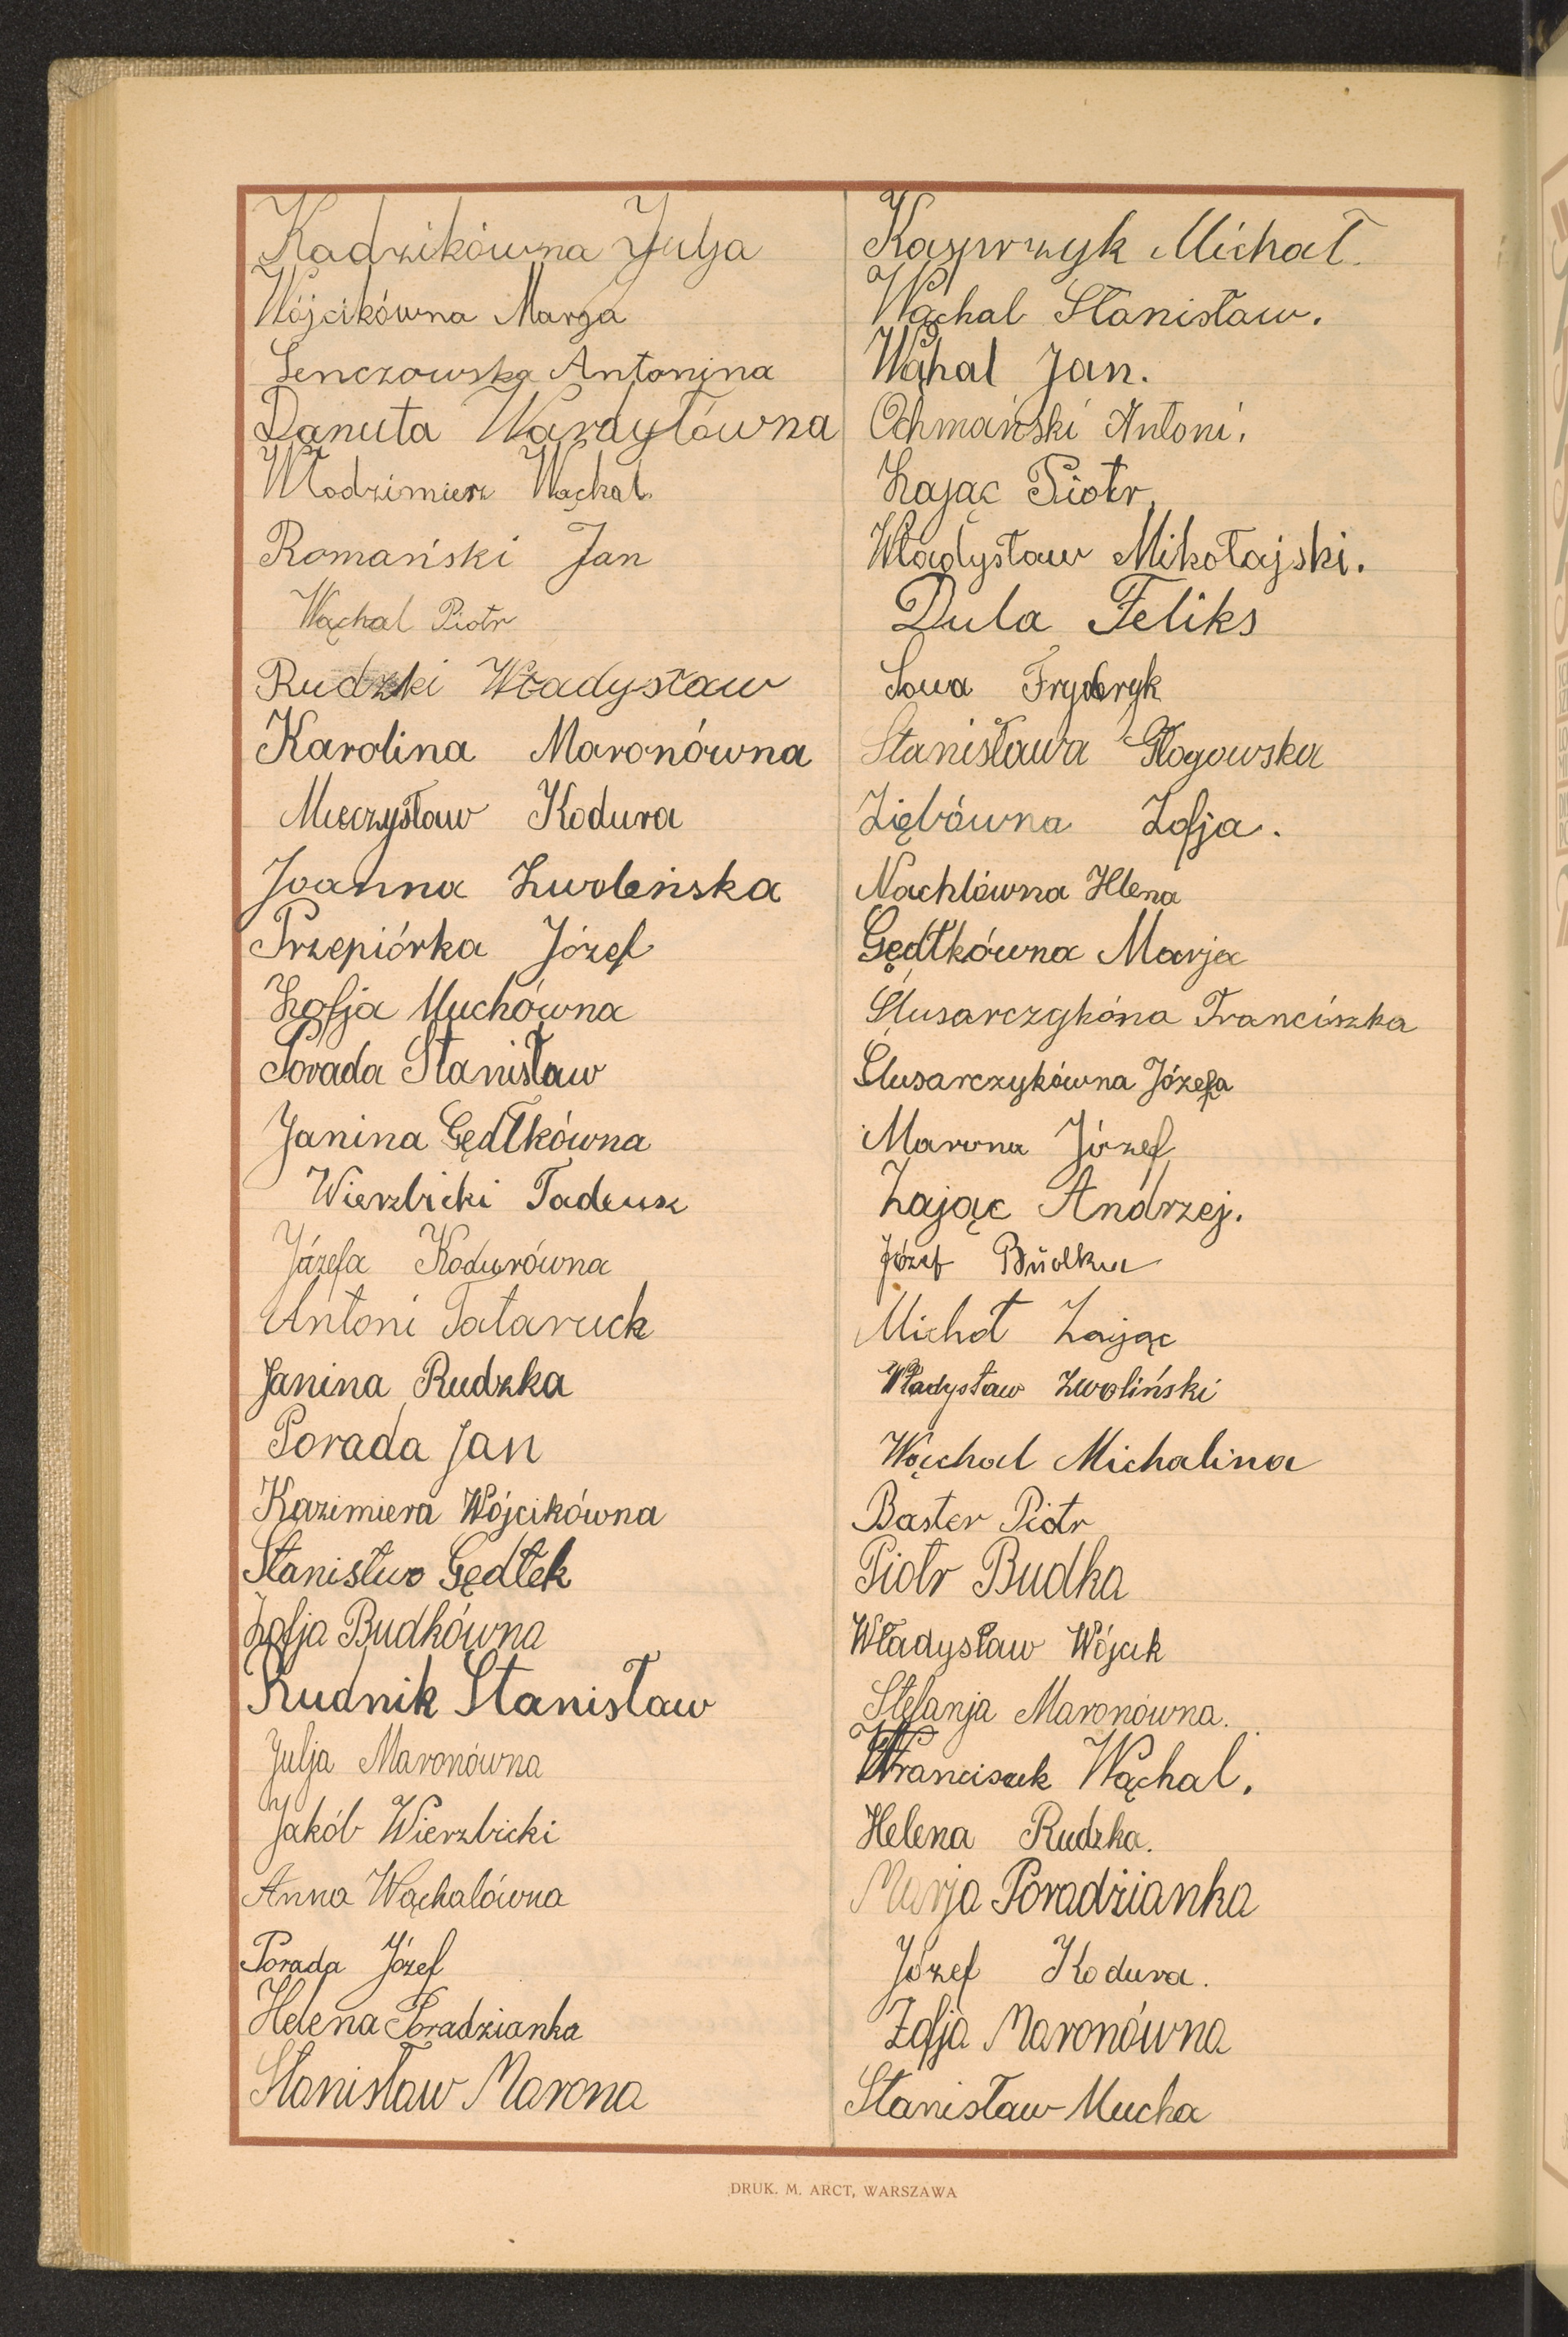 Kadzikówna Julja
Wójcikówna Marja
Lenczowska Antonina
Danuta Wardyłówna
Włodzimierz Wąchal.
Romański Jan
Wąchal Piotr
Rudzki Władysław
Karolina Maronówna
Mieczysław Kodura
Joanna Zwoleńska
Przepiórka Józef
Zofja Muchówna
Porada Stanisław
Janina Gędłkówna
Wierzbicki Tadeusz
Józefa Kodurówna
Antoni Tataruck
Janina Rudzka
Porada Jan
Kazimiera Wójcikówna
Stanisłwo Gędłek
Zofja Budkówna
Rudnik Stanisław
Julja Maronówna
Jakób Wierzbicki
Anna Wąchalówna
Porada Józef
Helena Poradzianka
Stanisław Marona
Kasprzyk Michał.
Wąchal Stanisław.
Wąhal Jan.
Ochmański Antoni.
Zając Piotr.
Władysław Mikołajski.
Dula Feliks
Sowa Fryderyk
Stanisława Głogowska
Ziębówna Zofja.
Nachlówna Hlena
Gędłkówna Marja
Ślusarczykóna Franciszka
Ślusarczykówna Józefa
Marona Józef
Zając Andrzej.
Józef
Michał Zając
Władysław Zwoliński
Wąchal Michalina
Baster Piotr
Piotr Budka
Władysław Wójcik
Stefanja Maronówna.
Wąchal.
Helena Rudzka.
Marja Poradzianka
Józef Kodura.
Zofja Maronówna
Stanisław Mucha
DRUK. M. ARCT, WARSZAWA